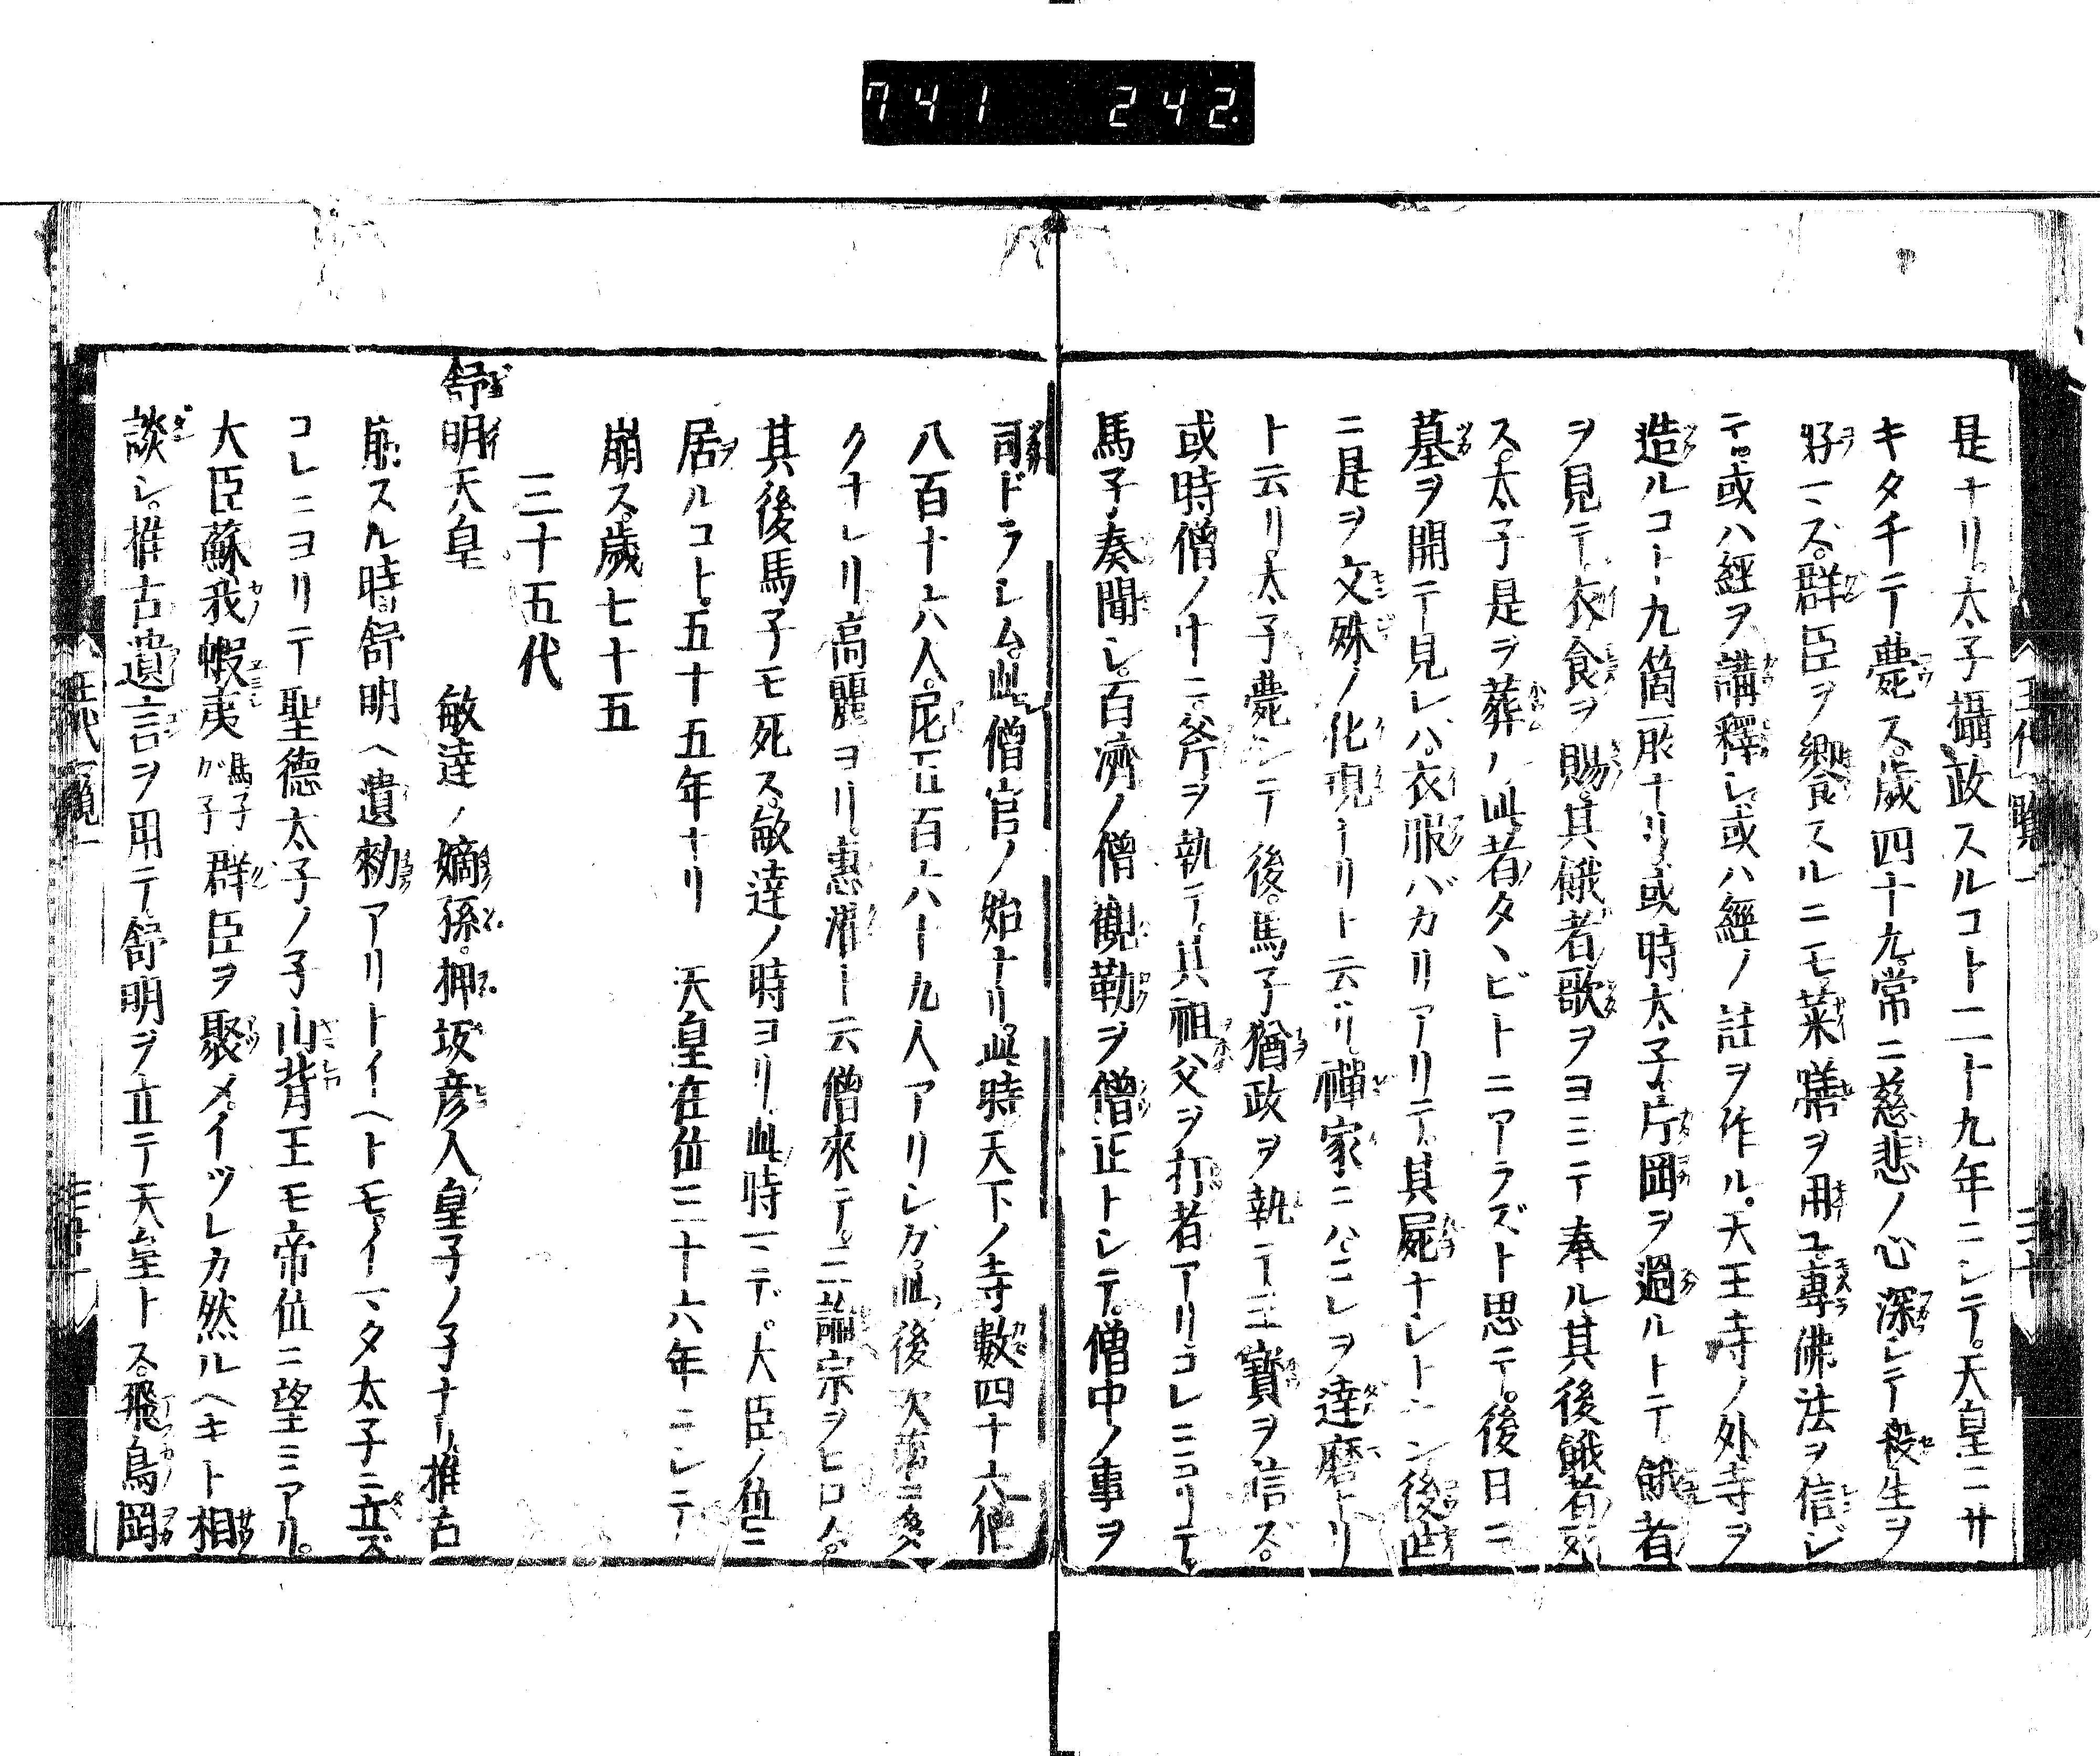 741 242.
是ナリ。太子攝政スルコト二十九年ニシテ。天皇ニサ
キタチテ薨ス。歳四十九。常ニ慈悲ノ心深シテ殺生ヲ
好マズ。群臣ヲ饗スルニモ菜膳ヲ用ユ。專佛法ヲ信ジ
テ。或ハ經ヲ講釋シ。或ハ經ノ註ヲ作ル。天王寺ノ外寺ヲ
造ルコト九箇所ナリ。或時太子片岡ヲ過ルトテ餓者
ヲ見テ。衣食ヲ賜。其餓者歌ヲヨミテ奉ル。其後餓者死
ス。太子是ヲ葬ル。此者タヽビトニアラズト思テ。後日ニ
墓ヲ開テ見レバ。衣服バカリアリテ。其屍ナシトゾ。後世
ニ是ヲ文殊ノ化現ナリト云ヘリ。禪家ニハコレヲ達磨ナリ
ト云リ。太子薨シテ後。馬子猶政ヲ執テ三寶ヲ信ズ。
或時僧ノ中ニ。斧ヲ執テ。其祖父ヲ打者アリ。コレニヨリテ。
馬子奏聞シ。百濟ノ僧觀勒ヲ僧正トシテ。僧中ノ事ヲ
司ドラシム。此僧官ノ始ナリ。此時天下ノ寺數四十六。僧
八百十六人。尼五百六十九人アリシガ。此後次第ニ多
クナレリ。高麗ヨリ。惠灌ト云僧來テ。三論宗ヲヒロム。
其後馬子モ死ス。敏達ノ時ヨリ。此時マデ。大臣ノ位ニ
居ルコト。五十五年ナリ 天皇在位三十六年ニシテ
崩ス。歳七十五
三十五代
舒明天皇 敏達ノ嫡孫。押坂彦人皇子ノ子ナリ。推古
崩スル時。舒明ヘ遺勅アリトイヘトモ。イマタ太子ニ立ズ
コレニヨリテ聖德太子ノ子山背王モ帝位ニ望ミアリ。
大臣蘇我蝦夷馬子ガ子群臣ヲ聚メ。イツレカ然ルヘキト相
談シ。推古遺言ヲ用テ。舒明ヲ立テ天皇トス。飛鳥岡